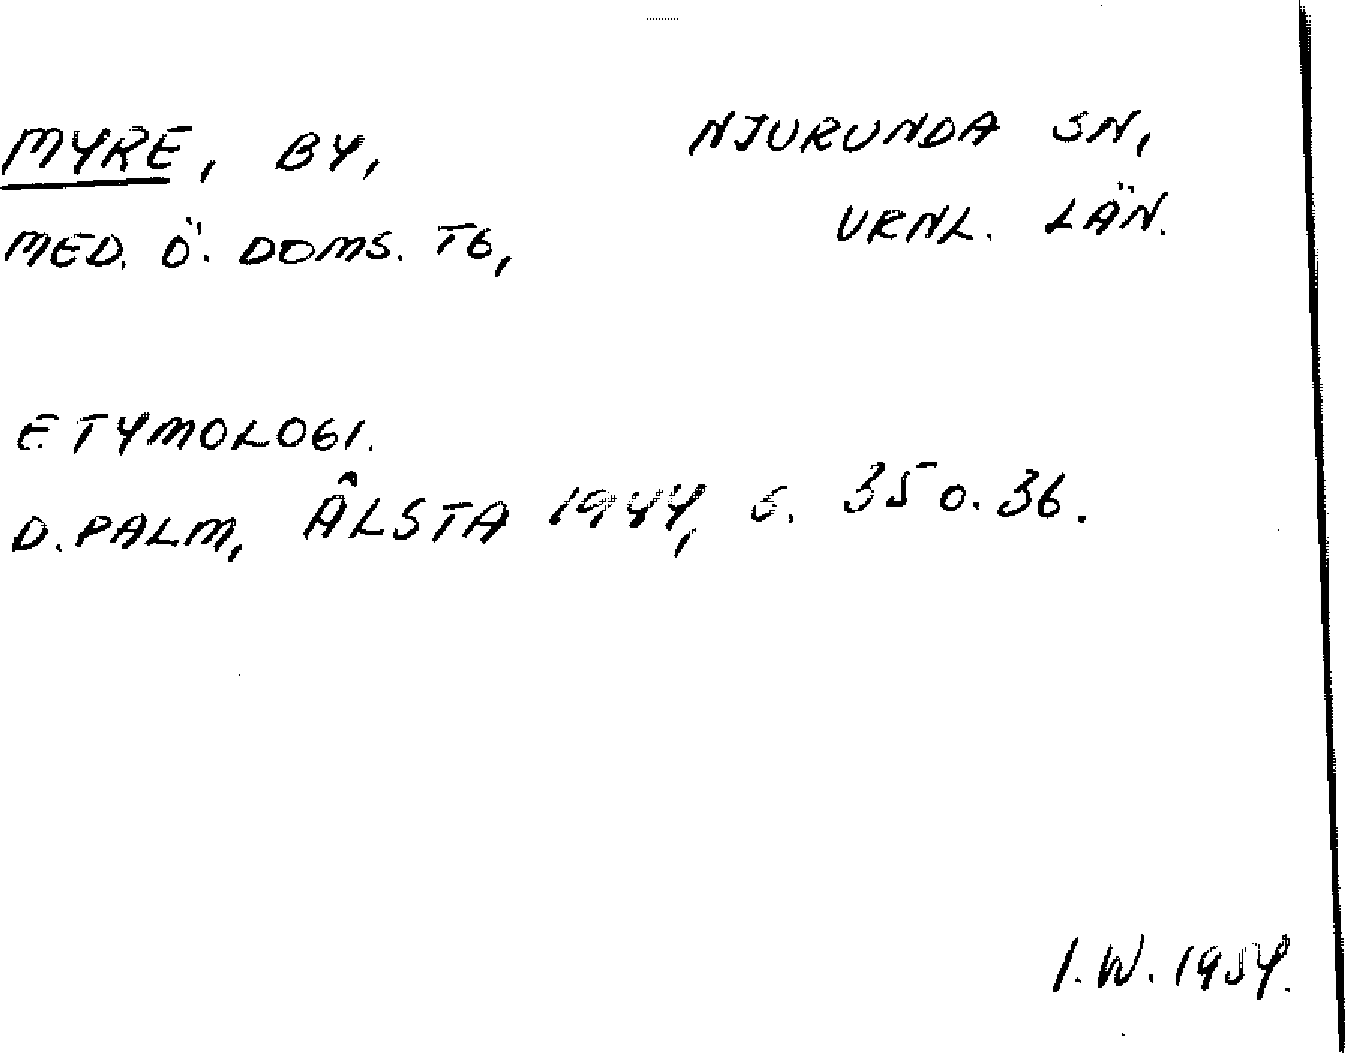 MYRE, BY,
NJURUNDA SN,
MED. Ö. DOMS. TG,
VRNL. LÄN.
ETYMOLOGI.
D. PALM, ÅLSTA 1944, S. 35 O. 36.
I.W. 1954.